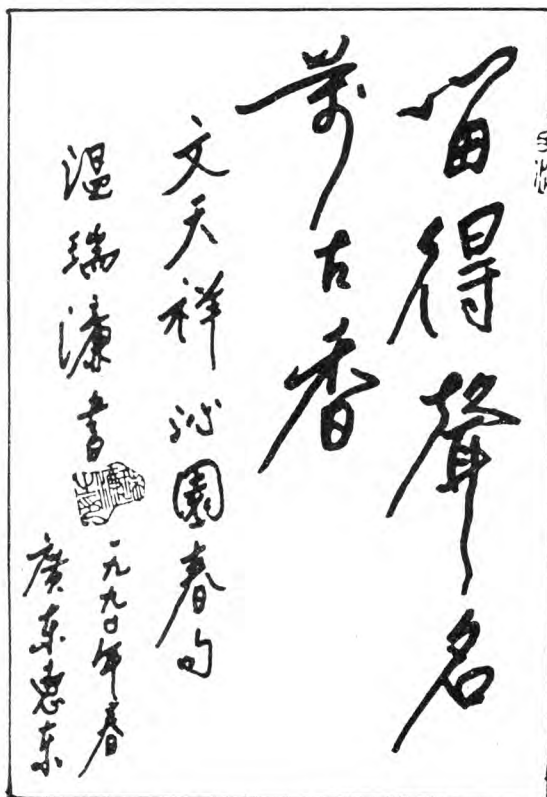 留得聲名
萬古香
文天祥沁園春句
温瑞濂書
一九九〇年春
廣东惠东